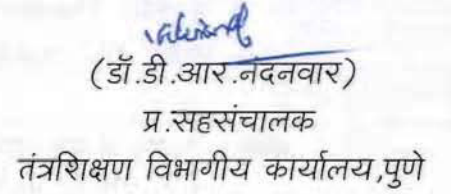 (डॉ.डी.आर.नंदनवार)
प्र.सहसंचालक
तंत्रशिक्षण विभागीय कार्यालय,पुणे